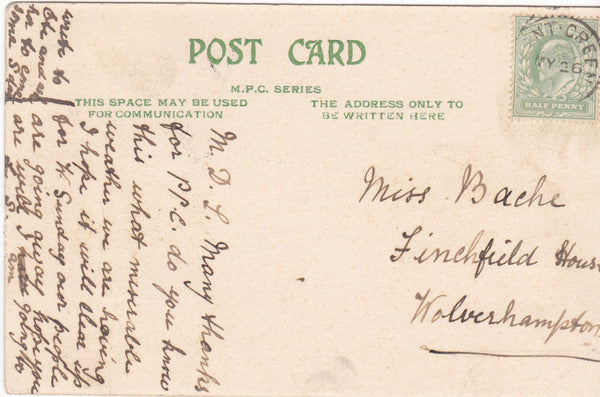 POST CARD
M.P.C. SERIES
THIS SPACE MAY BE USED
FOR COMMUNICATION
THE ADDRESS ONLY TO
BE WRITTEN HERE
NT. GREEN
MY 26
HALF PENNY
Miss Bache
Finchfield House
Wolverhampton
M. D. L. Many thanks
for P.P.C. do you know
this what miserable
weather we are having
I hope it will clear up
for W. Sunday our people
are going away hope you
are
L. S.
I am
write to